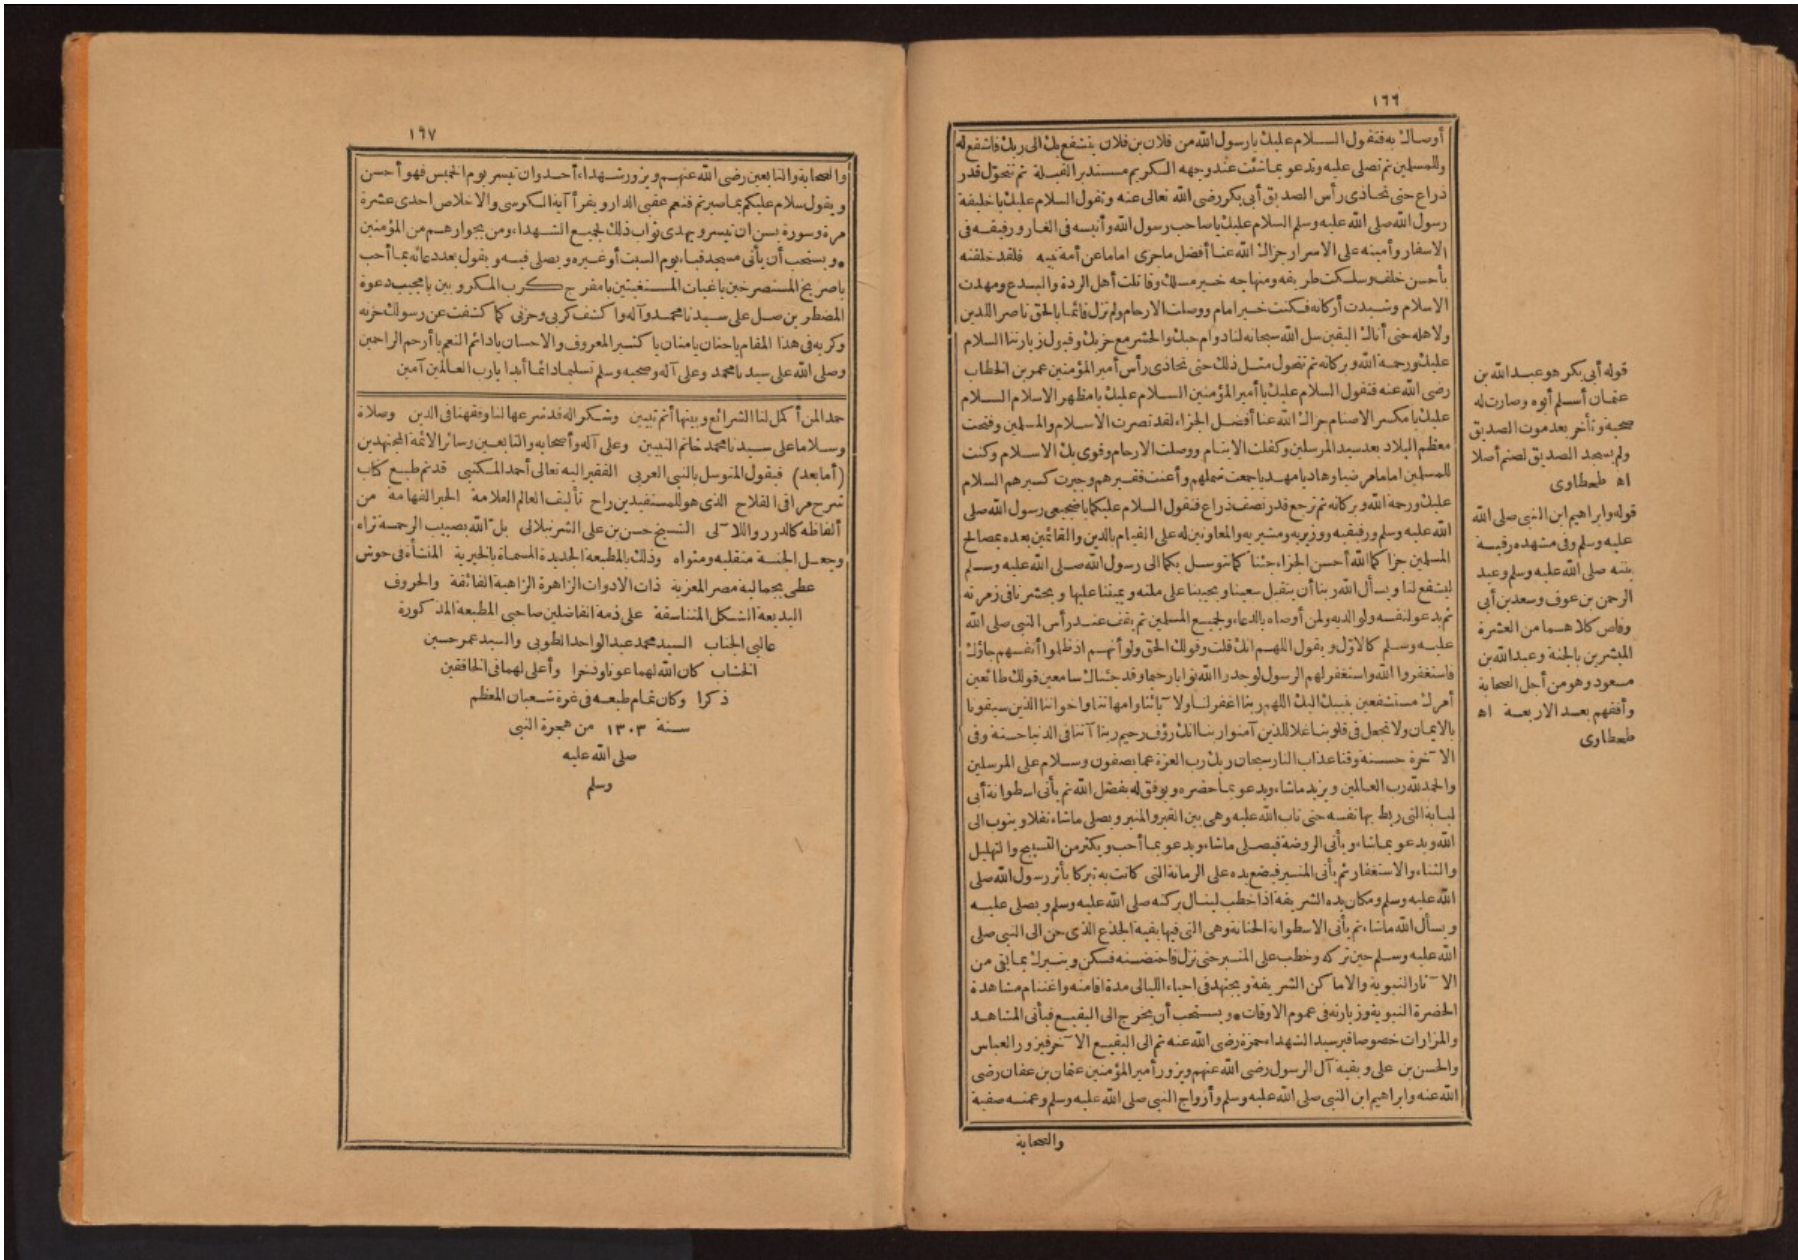 ١٦٦
أوصاك به فتقول السلام عليك يا رسول الله من فلان بن فلان يتشفع بك الى ربك فاشفع له
وللمسلمين ثم تصلى عليه وتدعو بما شئت عند وجهه الكريم مستدبر القبلة ثم تتحوّل قدر
ذراع حتى تحاذى رأس الصديق أبى بكر رضى الله تعالى عنه وتقول السلام عليك يا خليفة
رسول الله صلى الله عليه وسلم السلام عليك يا صاحب رسول الله وأنيسه فى الغار ورفيقه فى
الاسفار وأمينه على الاسرار جزاك الله عنا أفضل ما جزى اماما عن أمة نبيه فلقد خلفته
بأحسن خلف وسلكت طريقه ومنهاجه خير مسلك وقاتلت أهل الردة والبدع ومهدت
الاسلام وشيدت أركانه فكنت خير امام ووصلت الارحام ولم تزل قائما بالحق ناصر اللدين
ولاهله حتى أتاك اليقين سل الله سبحانه لنا دوام حبك والحشر مع حزبك وقبول زيارتنا السلام
عليك ورحمة الله وبركاته ثم تتحول مثل ذلك حتى تحاذى رأس أمير المؤمنين عمر بن الخطاب
رضى الله عنه فتقول السلام عليك يا أمير المؤمنين السلام عليك يا مظهر الاسلام السلام
عليك يا مكسر الاصنام جزاك الله عنا أفضل الجزاء لقد نصرت الاسلام والمسلمين وفتحت
معظم البلاد بعد سيد المرسلين وكفلت الايتام ووصلت الارحام وقوى بك الاسلام وكنت
للمسلمين اماما مرضيا وهاديا مهديا جمعت شملهم وأعنت فقيرهم وجبرت كسيرهم السلام
عليك ورحمة الله وبركاته ثم ترجع قدر نصف ذراع فتقول السلام عليكما يا ضجيعى رسول الله صلى
الله عليه وسلم ورفيقيه ووزيريه ومشيريه والمعاونين له على القيام بالدين والقائمين بعده بمصالح
المسلمين جزاكما الله أحسن الجزاء جئنا كما نتوسل بكما الى رسول الله صلى الله عليه وسلم
ليشفع لنا ويسأل الله ربنا أن يتقبل سعينا ويحيينا على ملته ويميتنا عليها ويحشرنا فى زمرته
ثم يدعو لنفسه ولوالديه ولمن أوصاه بالدعاء ولجميع المسلمين ثم يقف عند رأس النبى صلى الله
عليه وسلم كالاوّل ويقول اللهم انك قلت وقولك الحق ولو أنهم اذ ظلموا أنفسهم جاؤك
فاستغفروا الله واستغفر لهم الرسول لوجدوا الله توابا رحيما وقد جئناك سامعين قولك طائعين
أمرك مستشفعين بنبيك اليك اللهم ربنا اغفر لنا ولآبائنا وامهاتنا واخواننا الذين سبقونا
بالايمان ولا تجعل فى قلوبنا غلا للذين آمنوا ربنا انك رؤف رحيم ربنا آتنا فى الدنيا حسنة وفى
الآخرة حسنة وقنا عذاب النار سبحان ربك رب العزة عما يصفون وسلام على المرسلين
والحمد لله رب العالمين ويزيد ما شاء ويدعو بما حضره ويوفق له بفضل الله ثم يأتى اسطوانة أبى
لبابة التى ربط بها نفسه حتى تاب الله عليه وهى بين القبر والمنبر ويصلى ما شاء نفلا ويتوب الى
الله ويدعو بما شاء ويأتى الروضة فيصلى ما شاء ويدعو بما أحب ويكثر من التسبيح والتهليل
والثناء والاستغفار ثم يأتى المنبر فيضع يده على الرمانة التى كانت به تبركا بأثر رسول الله صلى
الله عليه وسلم ومكان يده الشريفة اذا خطب لينال بركته صلى الله عليه وسلم ويصلى عليه
ويسأل الله ما شاء ثم يأتى الاسطوانة الحنانة وهى التى فيها بقية الجذع الذى حن الى النبى صلى
الله عليه وسلم حين تركه وخطب على المنبر حتى نزل فاحتضنه فسكن ويتبرك بما بقى من
الآثار النبوية والاماكن الشريفة ويجتهد فى احياء الليالى مدة اقامته واغتنام مشاهدة
الحضرة النبوية وزيارته فى عموم الاوقات * ويستحب أن يخرج الى البقيع فيأتى المشاهد
والمزارات خصوصا قبر سيد الشهداء حمزة رضى الله عنه ثم الى البقيع الآخر فيزور العباس
والحسن بن على وبقية آل الرسول رضى الله عنهم ويزور أمير المؤمنين عثمان بن عفان رضى
الله عنه وابراهيم ابن النبى صلى الله عليه وسلم وأزواج النبى صلى الله عليه وسلم وعمته صفية
والصحابة
قوله أبى بكر هو عبد الله بن
عثمان أسلم أبوه وصارت له
صحبة وتأخر بعد موت الصديق
ولم يسجد الصديق لصنم أصلا
اه طحطاوى
قوله وابراهيم ابن النبى صلى الله
عليه وسلم وفى مشهده رقية
بنته صلى الله عليه وسلم وعبد
الرحمن بن عوف وسعد بن أبى
وقاص كلاهما من العشرة
المبشرين بالجنة وعبد الله بن
مسعود وهو من أجل الصحابة
وأفقههم بعد الاربعة اه
طحطاوى
١٦٧
والصحابة والتابعين رضى الله عنهم ويزور شهداء أحد وان تيسر يوم الخميس فهو أحسن
ويقول سلام عليكم بما صبرتم فنعم عقبى الدار ويقرأ آية الكرسى والاخلاص احدى عشرة
مرة وسورة يس ان تيسر ويهدى ثواب ذلك لجميع الشهداء ومن بجوارهم من المؤمنين
* ويستحب أن يأتى مسجد قباء يوم السبت أو غيره ويصلى فيه ويقول بعد دعائه بما أحب
يا صريخ المستصرخين يا غياث المستغيثين يا مفرج كرب المكروبين يا مجيب دعوة
المضطرين صل على سيدنا محمد وآله واكشف كربى وحزنى كما كشفت عن رسولك حزنه
وكربه فى هذا المقام يا حنان يا منان يا كثير المعروف والاحسان يا دائم النعم يا أرحم الراحمين
وصلى الله على سيدنا محمد وعلى آله وصحبه وسلم تسليما دائما أبدا يا رب العالمين آمين
حمد المن أكمل لنا الشرائع وبينها أتم تبيين وشكرا له قد شرعها لنا وفقهنا فى الدين وصلاة
وسلاما على سيدنا محمد خاتم النبيين وعلى آله وأصحابه والتابعين وسائر الائمة المجتهدين
(أما بعد) فيقول المتوسل بالنبى العربى الفقير اليه تعالى أحمد المكتبى قد تم طبع كتاب
شرح مراقى الفلاح الذى هو للمستفيدين راح تأليف العالم العلامة الحبر الفهامة من
ألفاظه كالدرر واللآلى الشيخ حسن بن على الشرنبلالى بل الله بصبيب الرحمة ثراه
وجعل الجنة منقلبه ومثواه وذلك بالمطبعة الجديدة المسماة بالخيرية المنشأة فى حوش
عطى بجمالية مصر المعزية ذات الادوات الزاهرة الزاهية الفائقة والحروف
البديعة الشكل المتناسقة على ذمة الفاضلين صاحبى المطبعة المذكورة
عالى الجناب السيد محمد عبد الواحد الطوبى والسيد عمر حسين
الخشاب كان الله لهما عونا وذخرا وأعلى لهما فى الخافقين
ذكرا وكان تمام طبعه فى غرة شعبان المعظم
سنة ١٣٠٣ من هجرة النبى
صلى الله عليه
وسلم